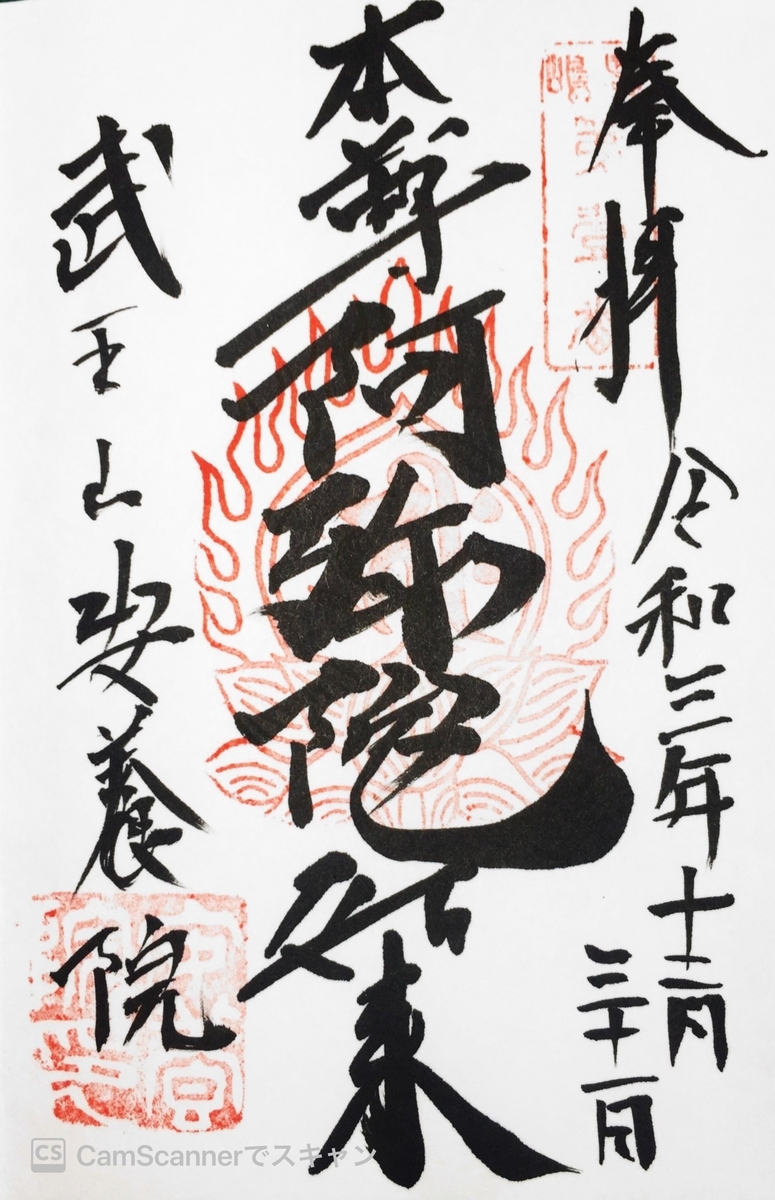 奉拝 令和三年十二月
三十一日
本尊 阿弥陀如来
武王山安養院
CS CamScannerでスキャン